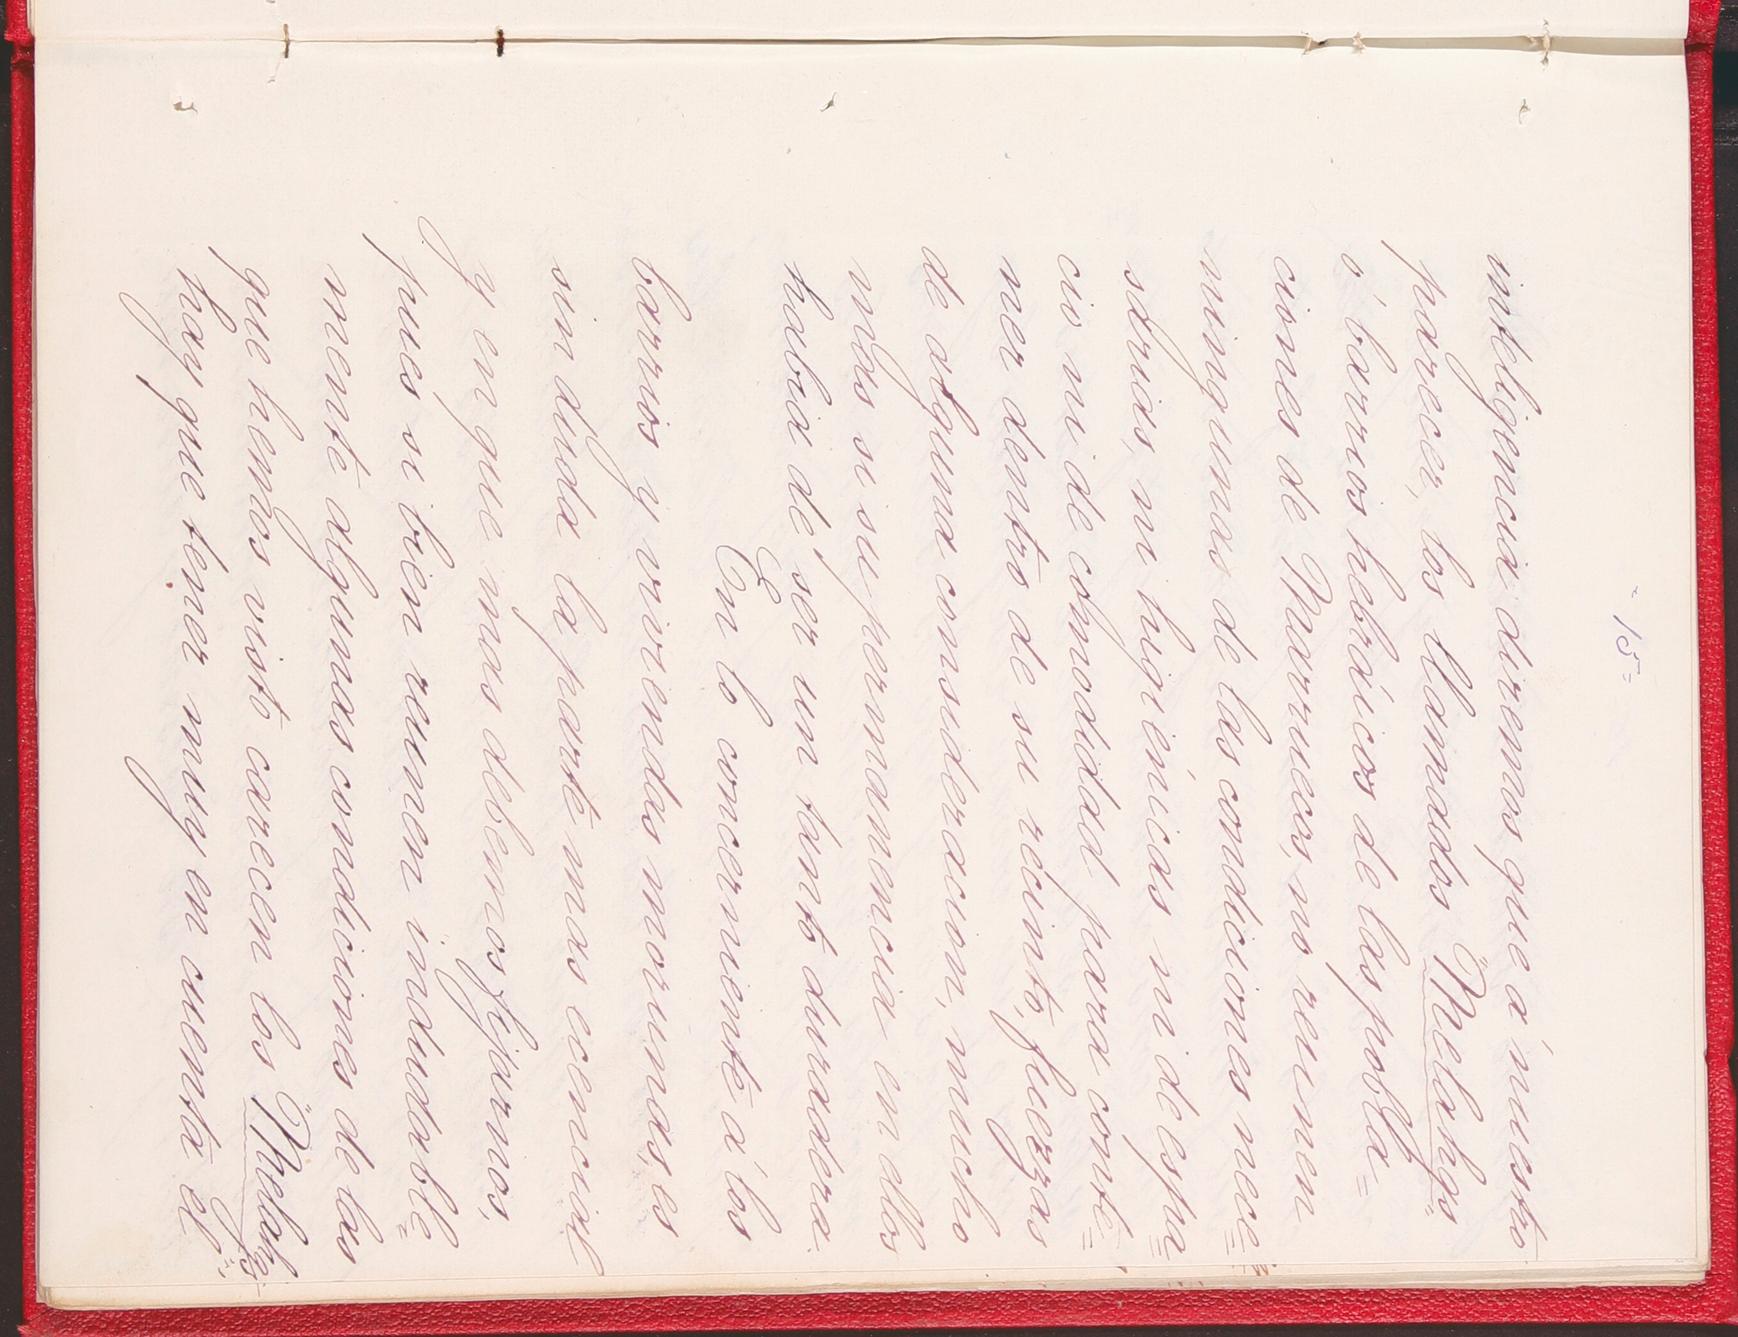 -15=
inteligencia diremos que á nuestro
parecer, los llamados "Melahgs"
ó barrios hebráicos de las pobla=
ciones de Marruecos, no reunen
ningunas de las condiciones nece=
sarias, ni higiénicas ni de espa=
cio ni de comodidad para conte=
ner dentro de su recinto, fuerzas
de alguna consideracion, mucho
mas si su permanencia en ellos
habia de ser un tanto duradera.
En lo concerniente á los
barrios y viviendas morunas, es
sin duda la parte mas ecencial
y en que mas debemos fijarnos,
pues si bien reunen indudable=
mente algunas condiciones de las
que hemos visto carecen los "Melahgs",
hay que tener muy en cuenta el